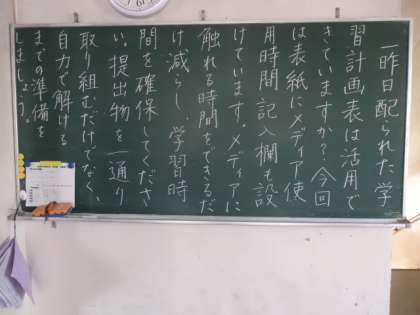 一昨日配られた学
習計画表は活用で
きていますか？今回
は表紙にメディア使
用時間記入欄も設
けています。メディアに
触れる時間をできるだ
け減らし、学習時
間を確保してくださ
い。提出物を一通り
取り組むだけでなく、
自力で解ける
までの準備を
しましょう。